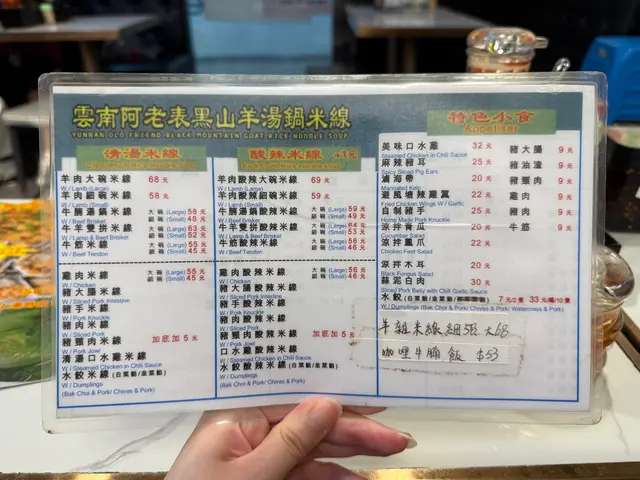 雲南阿老表黑山羊湯鍋米線
YUNNAN OLD FRIEND BLACK MOUNTAIN GOAT RICE NOODLE SOUP
清湯米線
羊肉大碗米線 68 元
W / Lamb (Large)
羊肉細碗米線 58 元
W / Lamb (Small)
牛腩湯鍋米線 大碗 (Large) 58 元
細碗 (Small) 48 元
W / Beef Brisket
牛羊雙拼米線 大碗 (Large) 63 元
細碗 (Small) 52 元
W / Lamb & Beef Brisket
牛筋米線 大碗 (Large) 55 元
細碗 (Small) 45 元
W / Beef Tendon
雞肉米線 大碗 (Large) 55 元
細碗 (Small) 45 元
W / Chicken
豬大腸米線
W / Sliced Pork Intestine
豬手米線
W / Pork Knuckle
豬肉米線
W / Sliced Pork
豬頸肉米線 加底加 5 元
W / Pork Jowl
清湯口水雞米線
W / Steamed Chicken in Chili Sauce
水餃米線 (白菜餡/韭菜餡)
W / Dumplings
(Bak Choi & Pork / Chives & Pork)
酸辣米線 +1元
羊肉酸辣大碗米線 69 元
W / Lamb (Large)
羊肉酸辣細碗米線 59 元
W / Lamb (Small)
牛腩湯鍋酸辣米線 大碗 (Large) 59 元
細碗 (Small) 49 元
W / Beef Brisket
牛羊雙拼酸辣米線 大碗 (Large) 64 元
細碗 (Small) 53 元
W / Lamb & Beef Brisket
牛筋酸辣米線 大碗 (Large) 56 元
細碗 (Small) 46 元
W / Beef Tendon
雞肉酸辣米線 大碗 (Large) 56 元
細碗 (Small) 46 元
W / Chicken
豬大腸酸辣米線
W / Sliced Pork Intestine
豬手酸辣米線
W / Pork Knuckle
豬肉酸辣米線
W / Sliced Pork
豬頸肉酸辣米線 加底加 5 元
W / Pork Jowl
口水雞酸辣米線
W / Steamed Chicken in Chili Sauce
水餃酸辣米線 (白菜餡/韭菜餡)
W / Dumplings
(Bak Choi & Pork/ Chives & Pork)
特色小食
Appetiser
美味口水雞 32 元
Steamed Chicken in Chili Sauce
麻辣豬耳 25 元
Spicy Sliced Pig Ears
滷海帶 20 元
Marinated Kelp
避風塘辣雞翼 22 元
Fried Chicken Wings W / Garlic
自制豬手 25 元
Home Made Pork Knuckle
涼拌青瓜 20 元
Cucumber Salad
涼拌鳳爪 22 元
Chicken Feet Salad
涼拌木耳 20 元
Black Fungus Salad
蒜泥白肉 30 元
Sliced Pork Belly with Chili Garlic Sauce
水餃 7 元/2隻 33 元/10隻
W / Dumplings (Bak Choi & Pork / Chives & Pork/ Watercress & Pork)
豬大腸 9 元
豬油渣 9 元
豬頸肉 9 元
雞肉 9 元
豬肉 9 元
牛筋 9 元
牛雜米線細58 大68
咖哩牛腩飯 $53